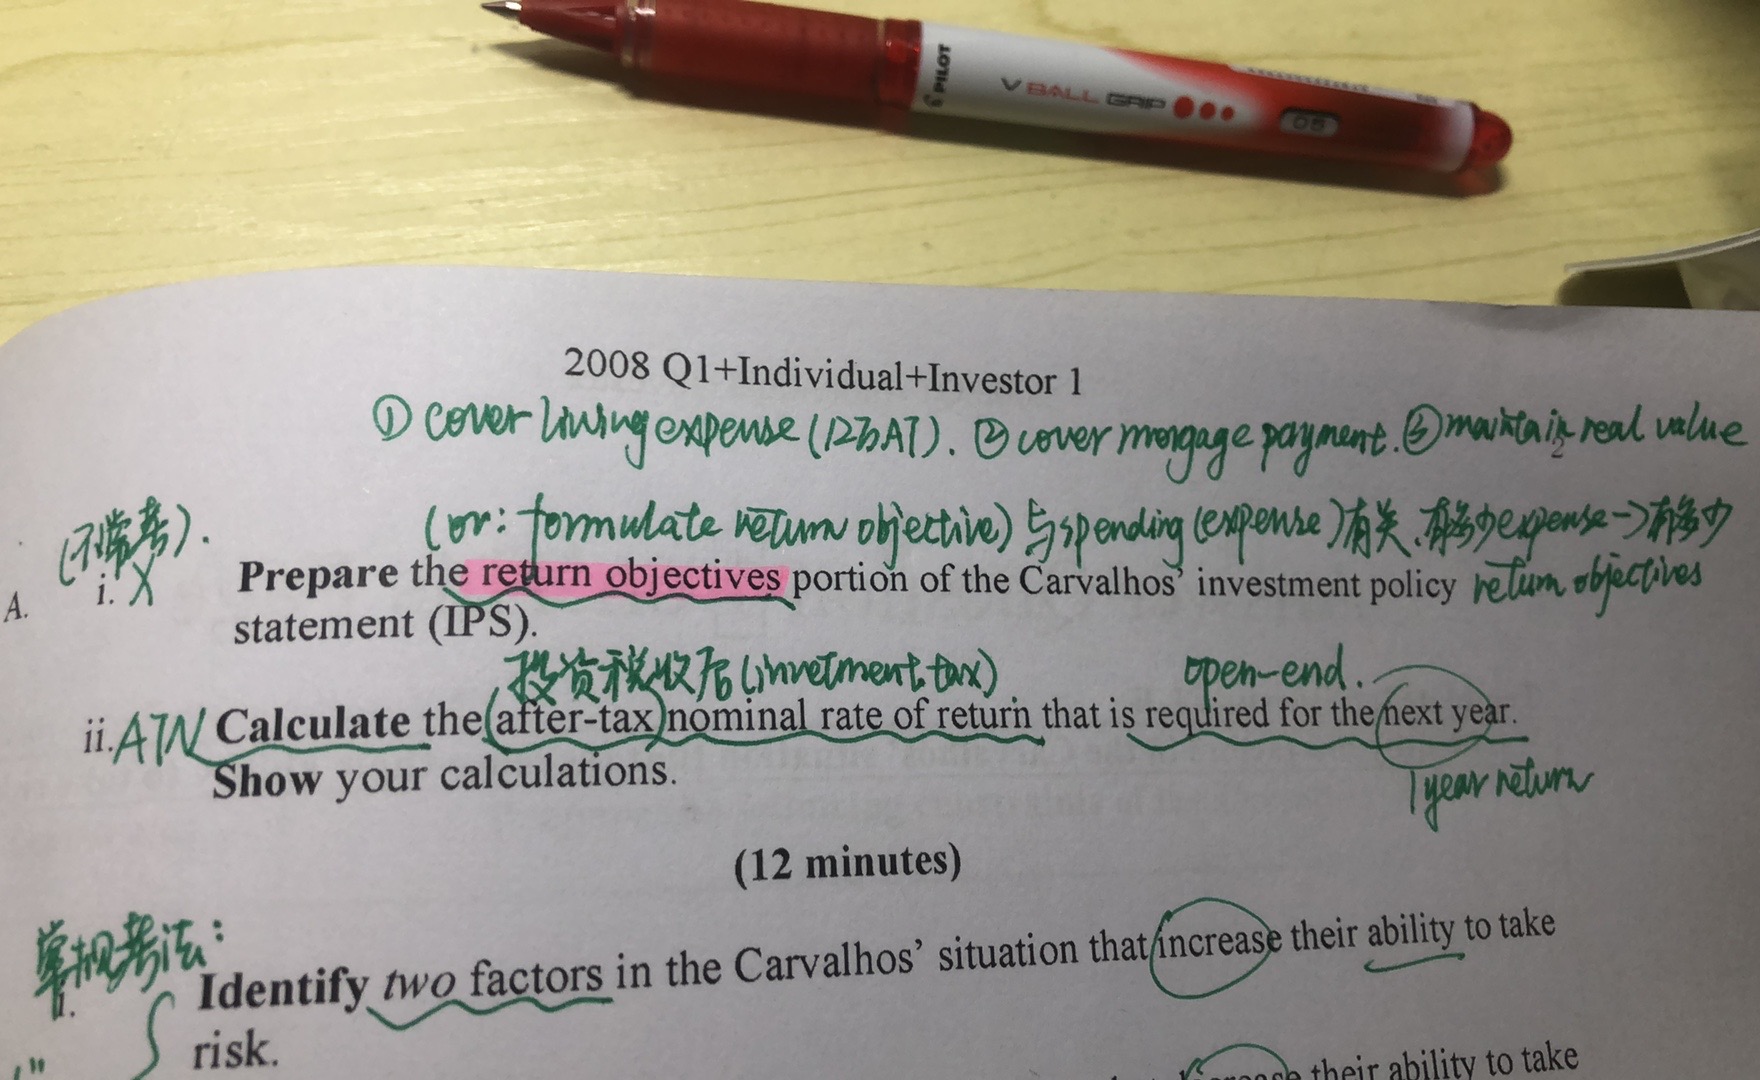 PILOT
V BALL GRIP
05
2008 Q1+Individual+Investor 1
① cover living expense (12万AT). ② cover morgage payment. ③ maintain real value
(不常考).
(or: formulate return objective) 与spending (expense) 有关、有多少expense→有多少
A. i. X Prepare the return objectives portion of the Carvalhos' investment policy return objectives
statement (IPS).
投资税收后 (invetment tax) open-end.
ii. ATN Calculate the (after-tax) nominal rate of return that is required for the next year.
Show your calculations. 1 year return
(12 minutes)
常规考法:
i. Identify two factors in the Carvalhos' situation that increase their ability to take
risk.
their ability to take